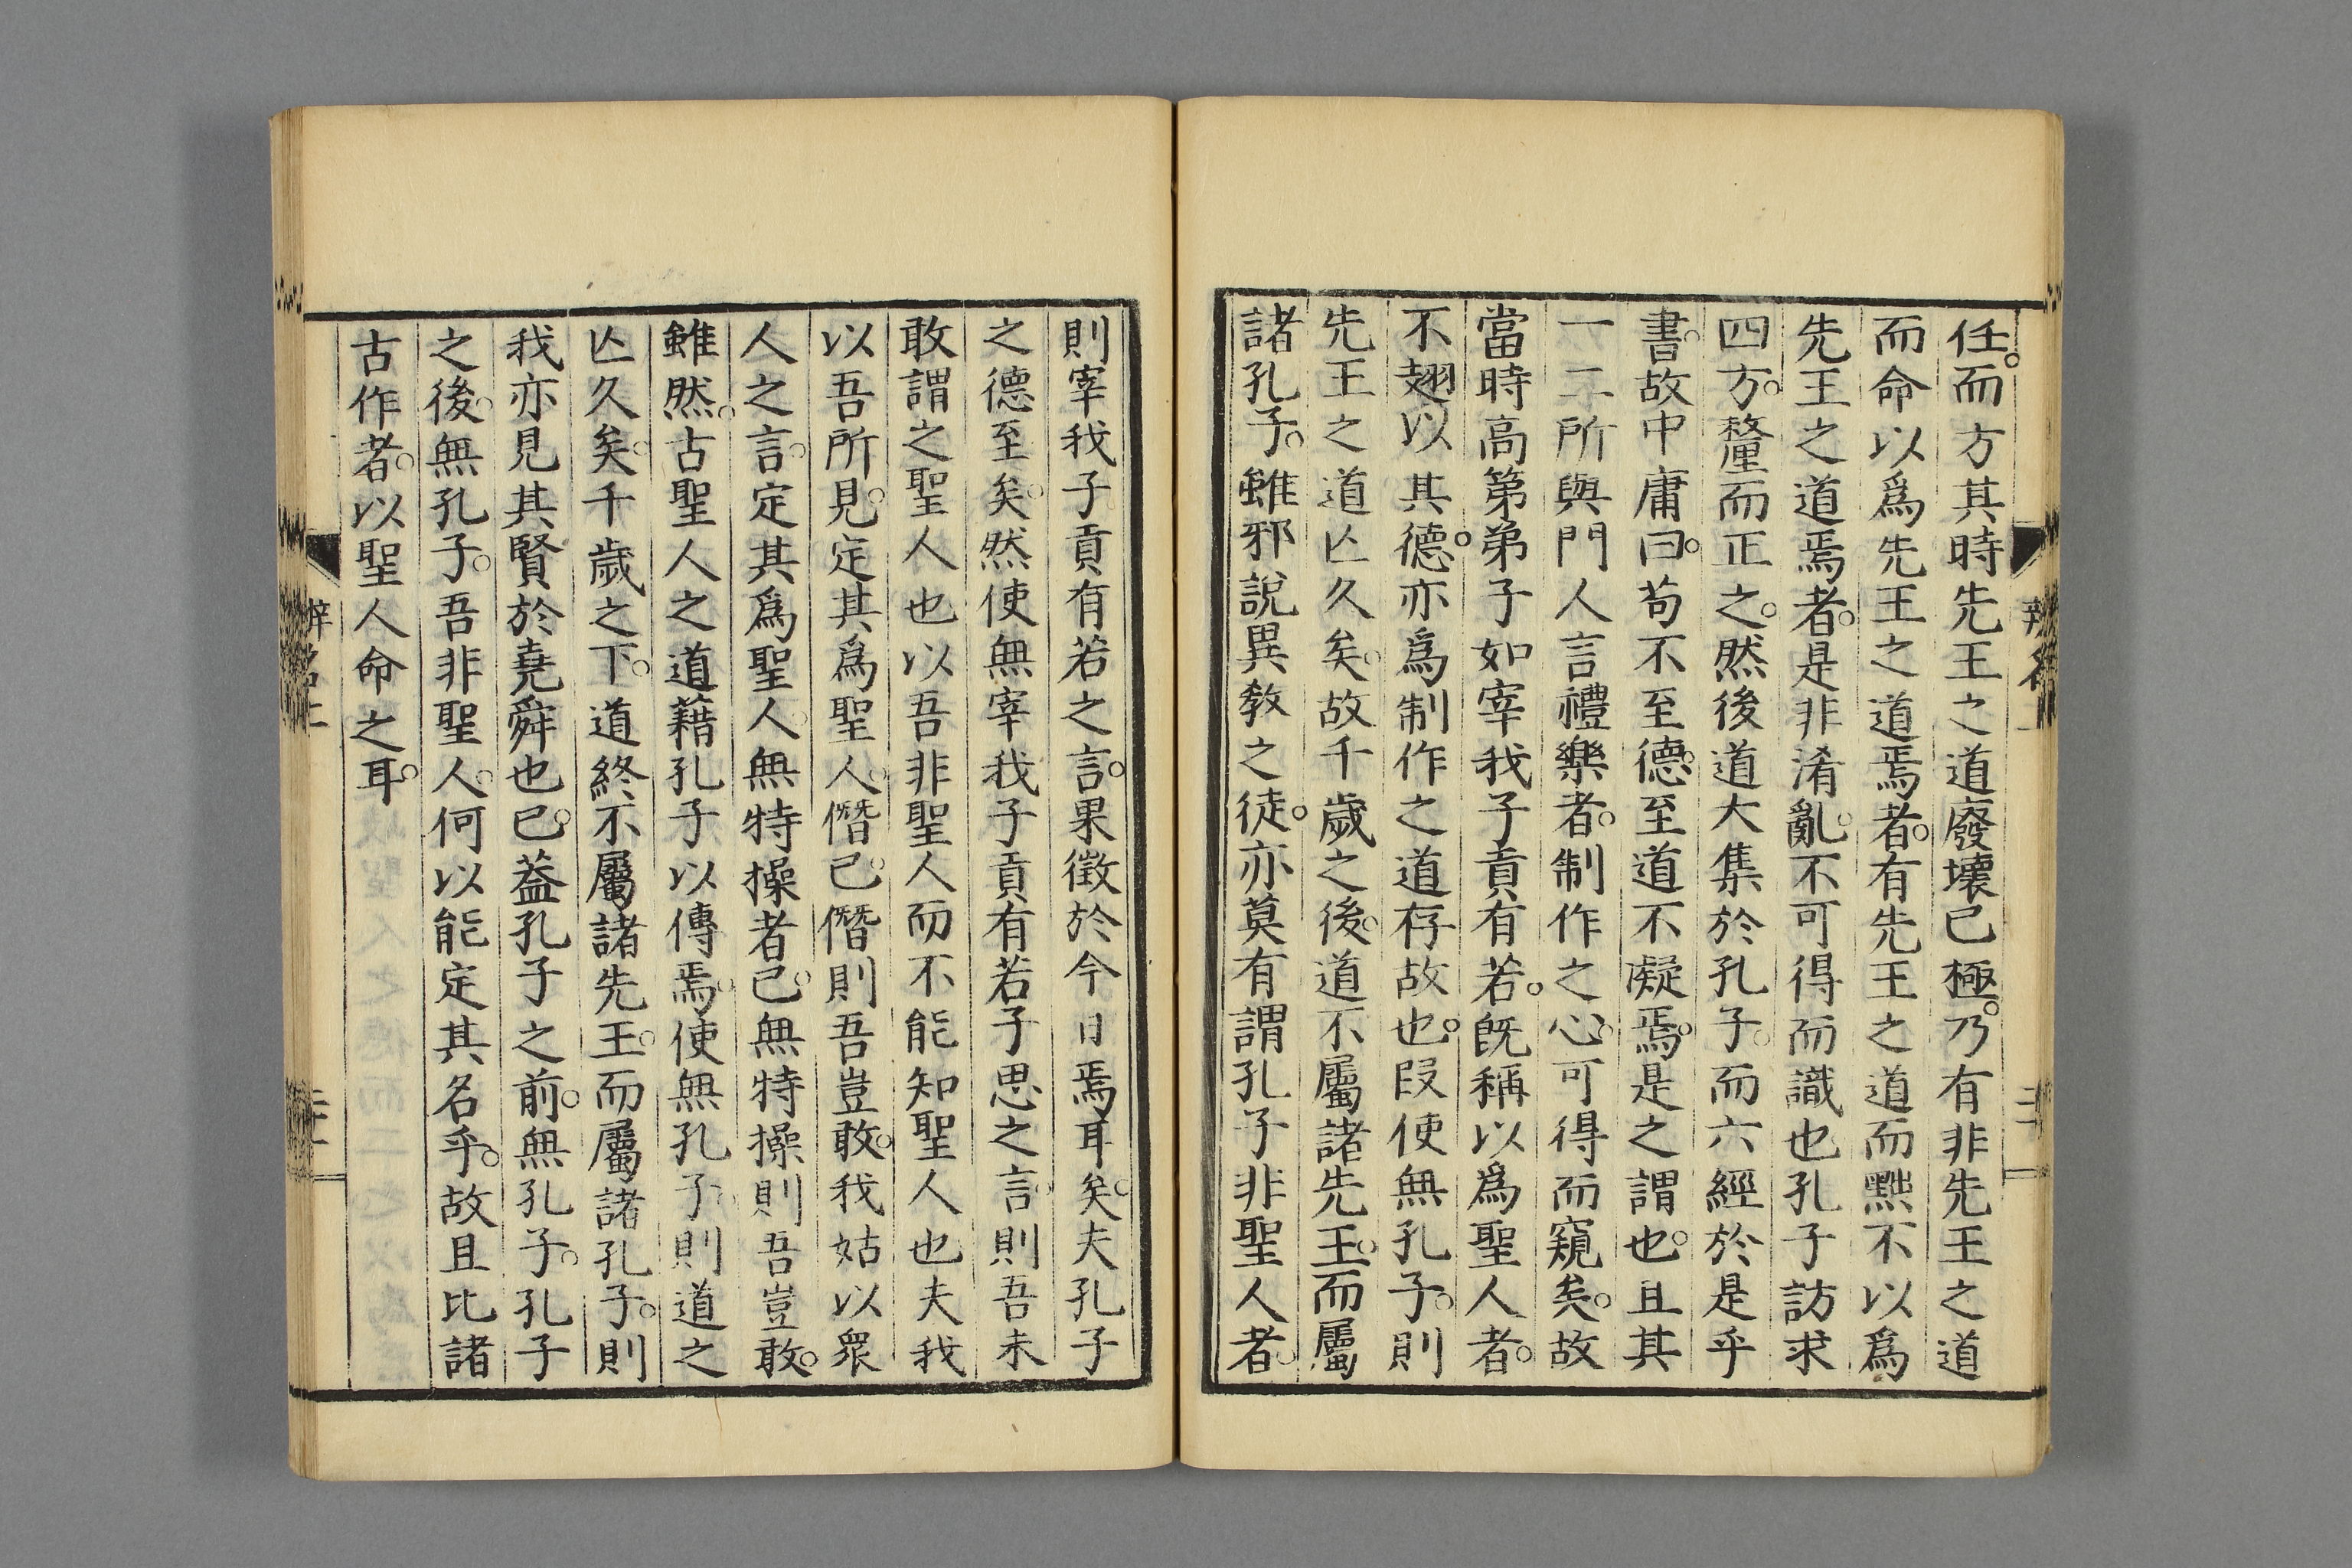 任。而方其時先王之道廢壞已極。乃有非先王之道
而命以爲先王之道焉者。有先王之道而黜不以爲
先王之道焉者。是非淆亂。不可得而識也孔子訪求
四方。釐而正之。然後道大集於孔子。而六經於是乎
書。故中庸曰。苟不至德。至道不凝焉。是之謂也。且其
一二所與門人言禮樂者。制作之心。可得而窺矣。故
當時高第弟子如宰我子貢有若。旣稱以爲聖人者。
不翅以其德。亦爲制作之道存故也。叚使無孔子。則
先王之道亾久矣。故千歲之後。道不屬諸先王。而屬
諸孔子。雖邪說異教之徒。亦莫有謂孔子非聖人者。
則宰我子貢有若之言。果徵於今日焉耳矣。夫孔子
之德至矣。然使無宰我子貢有若子思之言。則吾未
敢謂之聖人也以吾非聖人而不能知聖人也夫我
以吾所見。定其爲聖人。僭已。僭則吾豈敢。我姑以眾
人之言。定其爲聖人。無特操者已。無特操則吾豈敢。
雖然。古聖人之道藉孔子以傳焉。使無孔子。則道之
亾久矣。千歲之下。道終不屬諸先王。而屬諸孔子。則
我亦見其賢於堯舜也已。蓋孔子之前。無孔子。孔子
之後。無孔子。吾非聖人。何以能定其名乎。故且比諸
古作者。以聖人命之耳。
辨名上